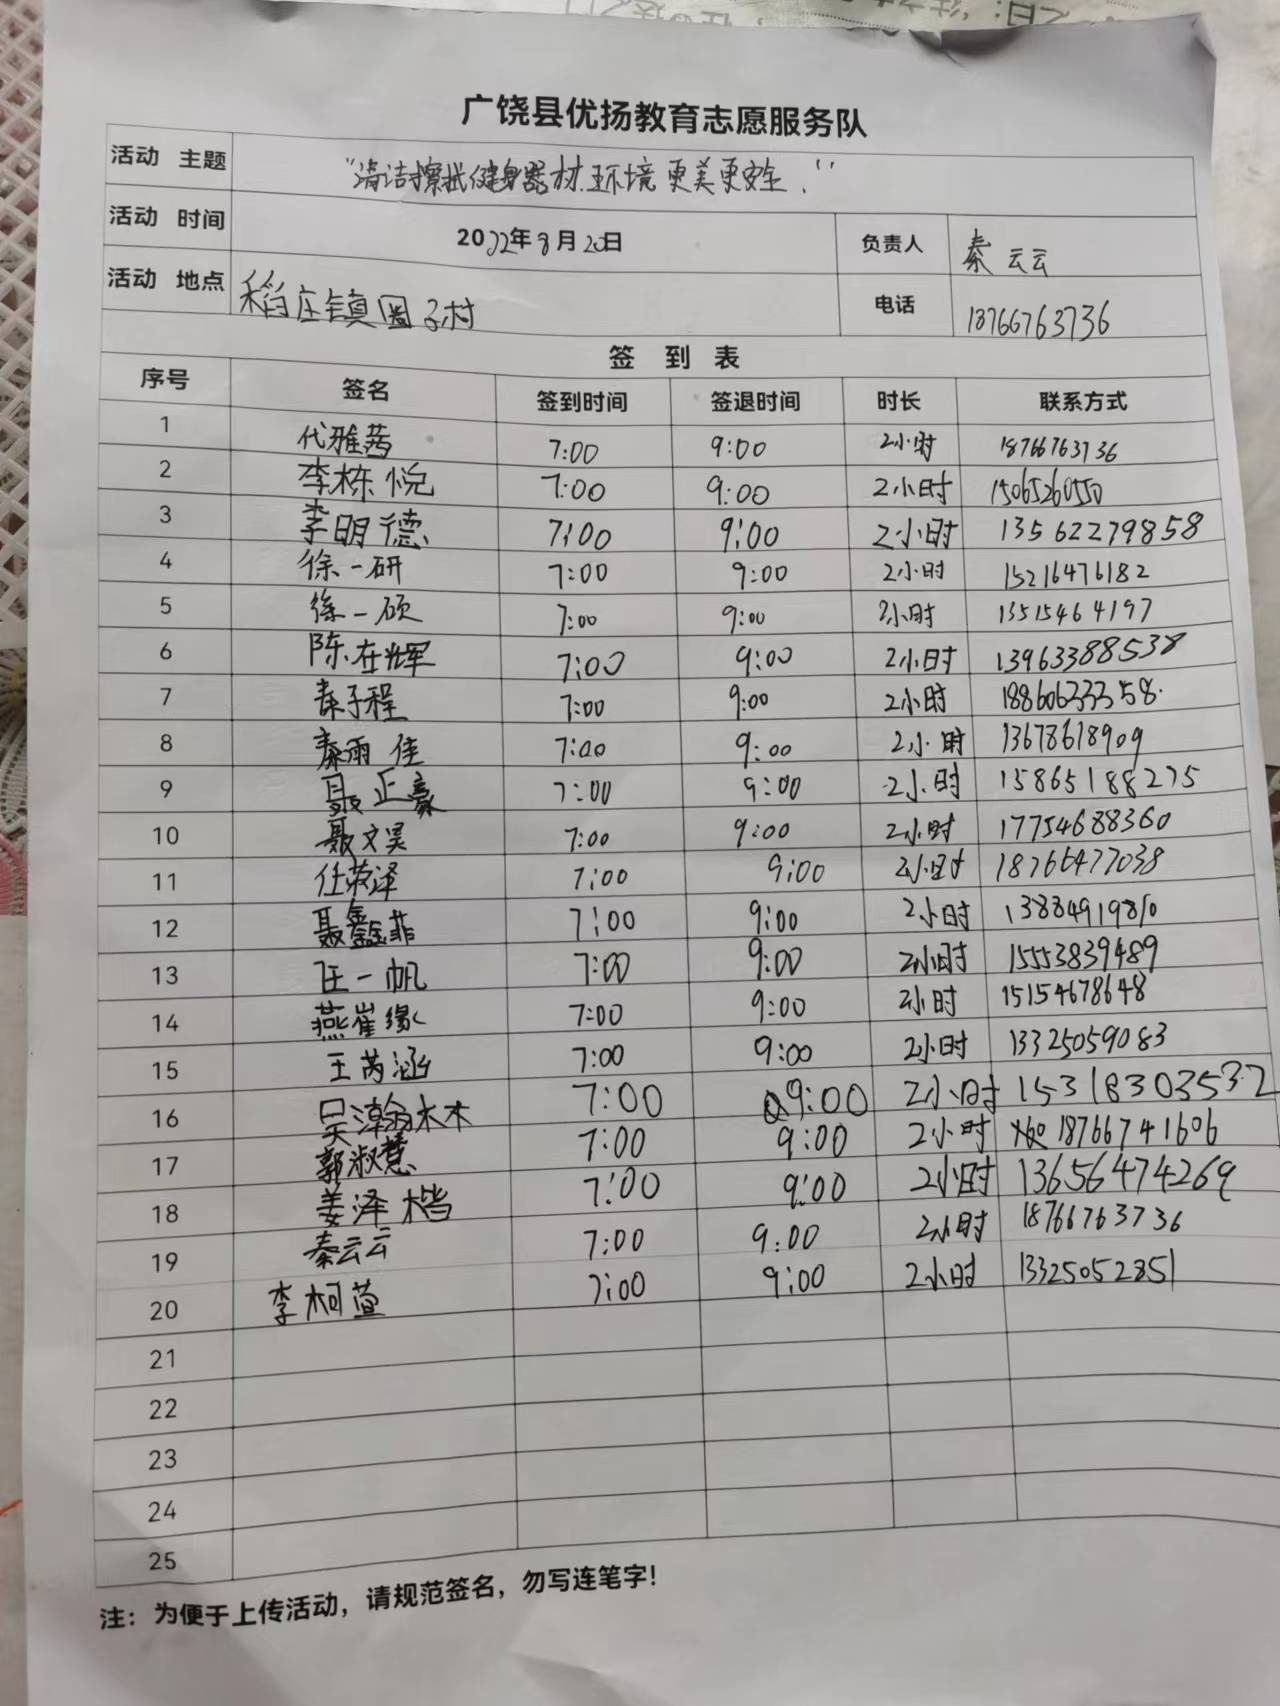 广饶县优扬教育志愿服务队
活动 主题 "清洁擦拭健身器材.环境更美更安全."
活动 时间 2022年8月20日 负责人 秦云云
活动 地点 稻庄镇圈子村 电话 18766763736
签 到 表
序号 签名 签到时间 签退时间 时长 联系方式
1 代雅茜 7:00 9:00 2小时 18766763736
2 李栋悦 7:00 9:00 2小时 15065260550
3 李明德 7:00 9:00 2小时 13562279858
4 徐一研 7:00 9:00 2小时 15216476182
5 徐一硕 7:00 9:00 2小时 13515464197
6 陈在辉 7:00 9:00 2小时 13963388538
7 秦子程 7:00 9:00 2小时 18860633358
8 秦雨佳 7:00 9:00 2小时 13678618909
9 聂正豪 7:00 9:00 2小时 15865188275
10 聂文昊 7:00 9:00 2小时 17754688360
11 任荣泽 7:00 9:00 2小时 18766477038
12 聂鑫菲 7:00 9:00 2小时 13884919810
13 任一帆 7:00 9:00 2小时 15553839489
14 燕崔缘 7:00 9:00 2小时 15154678648
15 王芮涵 7:00 9:00 2小时 13325059083
16 吴瀚林 7:00 9:00 2小时 15318303532
17 郭淑慧 7:00 9:00 2小时 18766741606
18 姜泽楷 7:00 9:00 2小时 13656474269
19 秦云云 7:00 9:00 2小时 18766763736
20 李柯萱 7:00 9:00 2小时 13325052851
21
22
23
24
25
注：为便于上传活动，请规范签名，勿写连笔字！